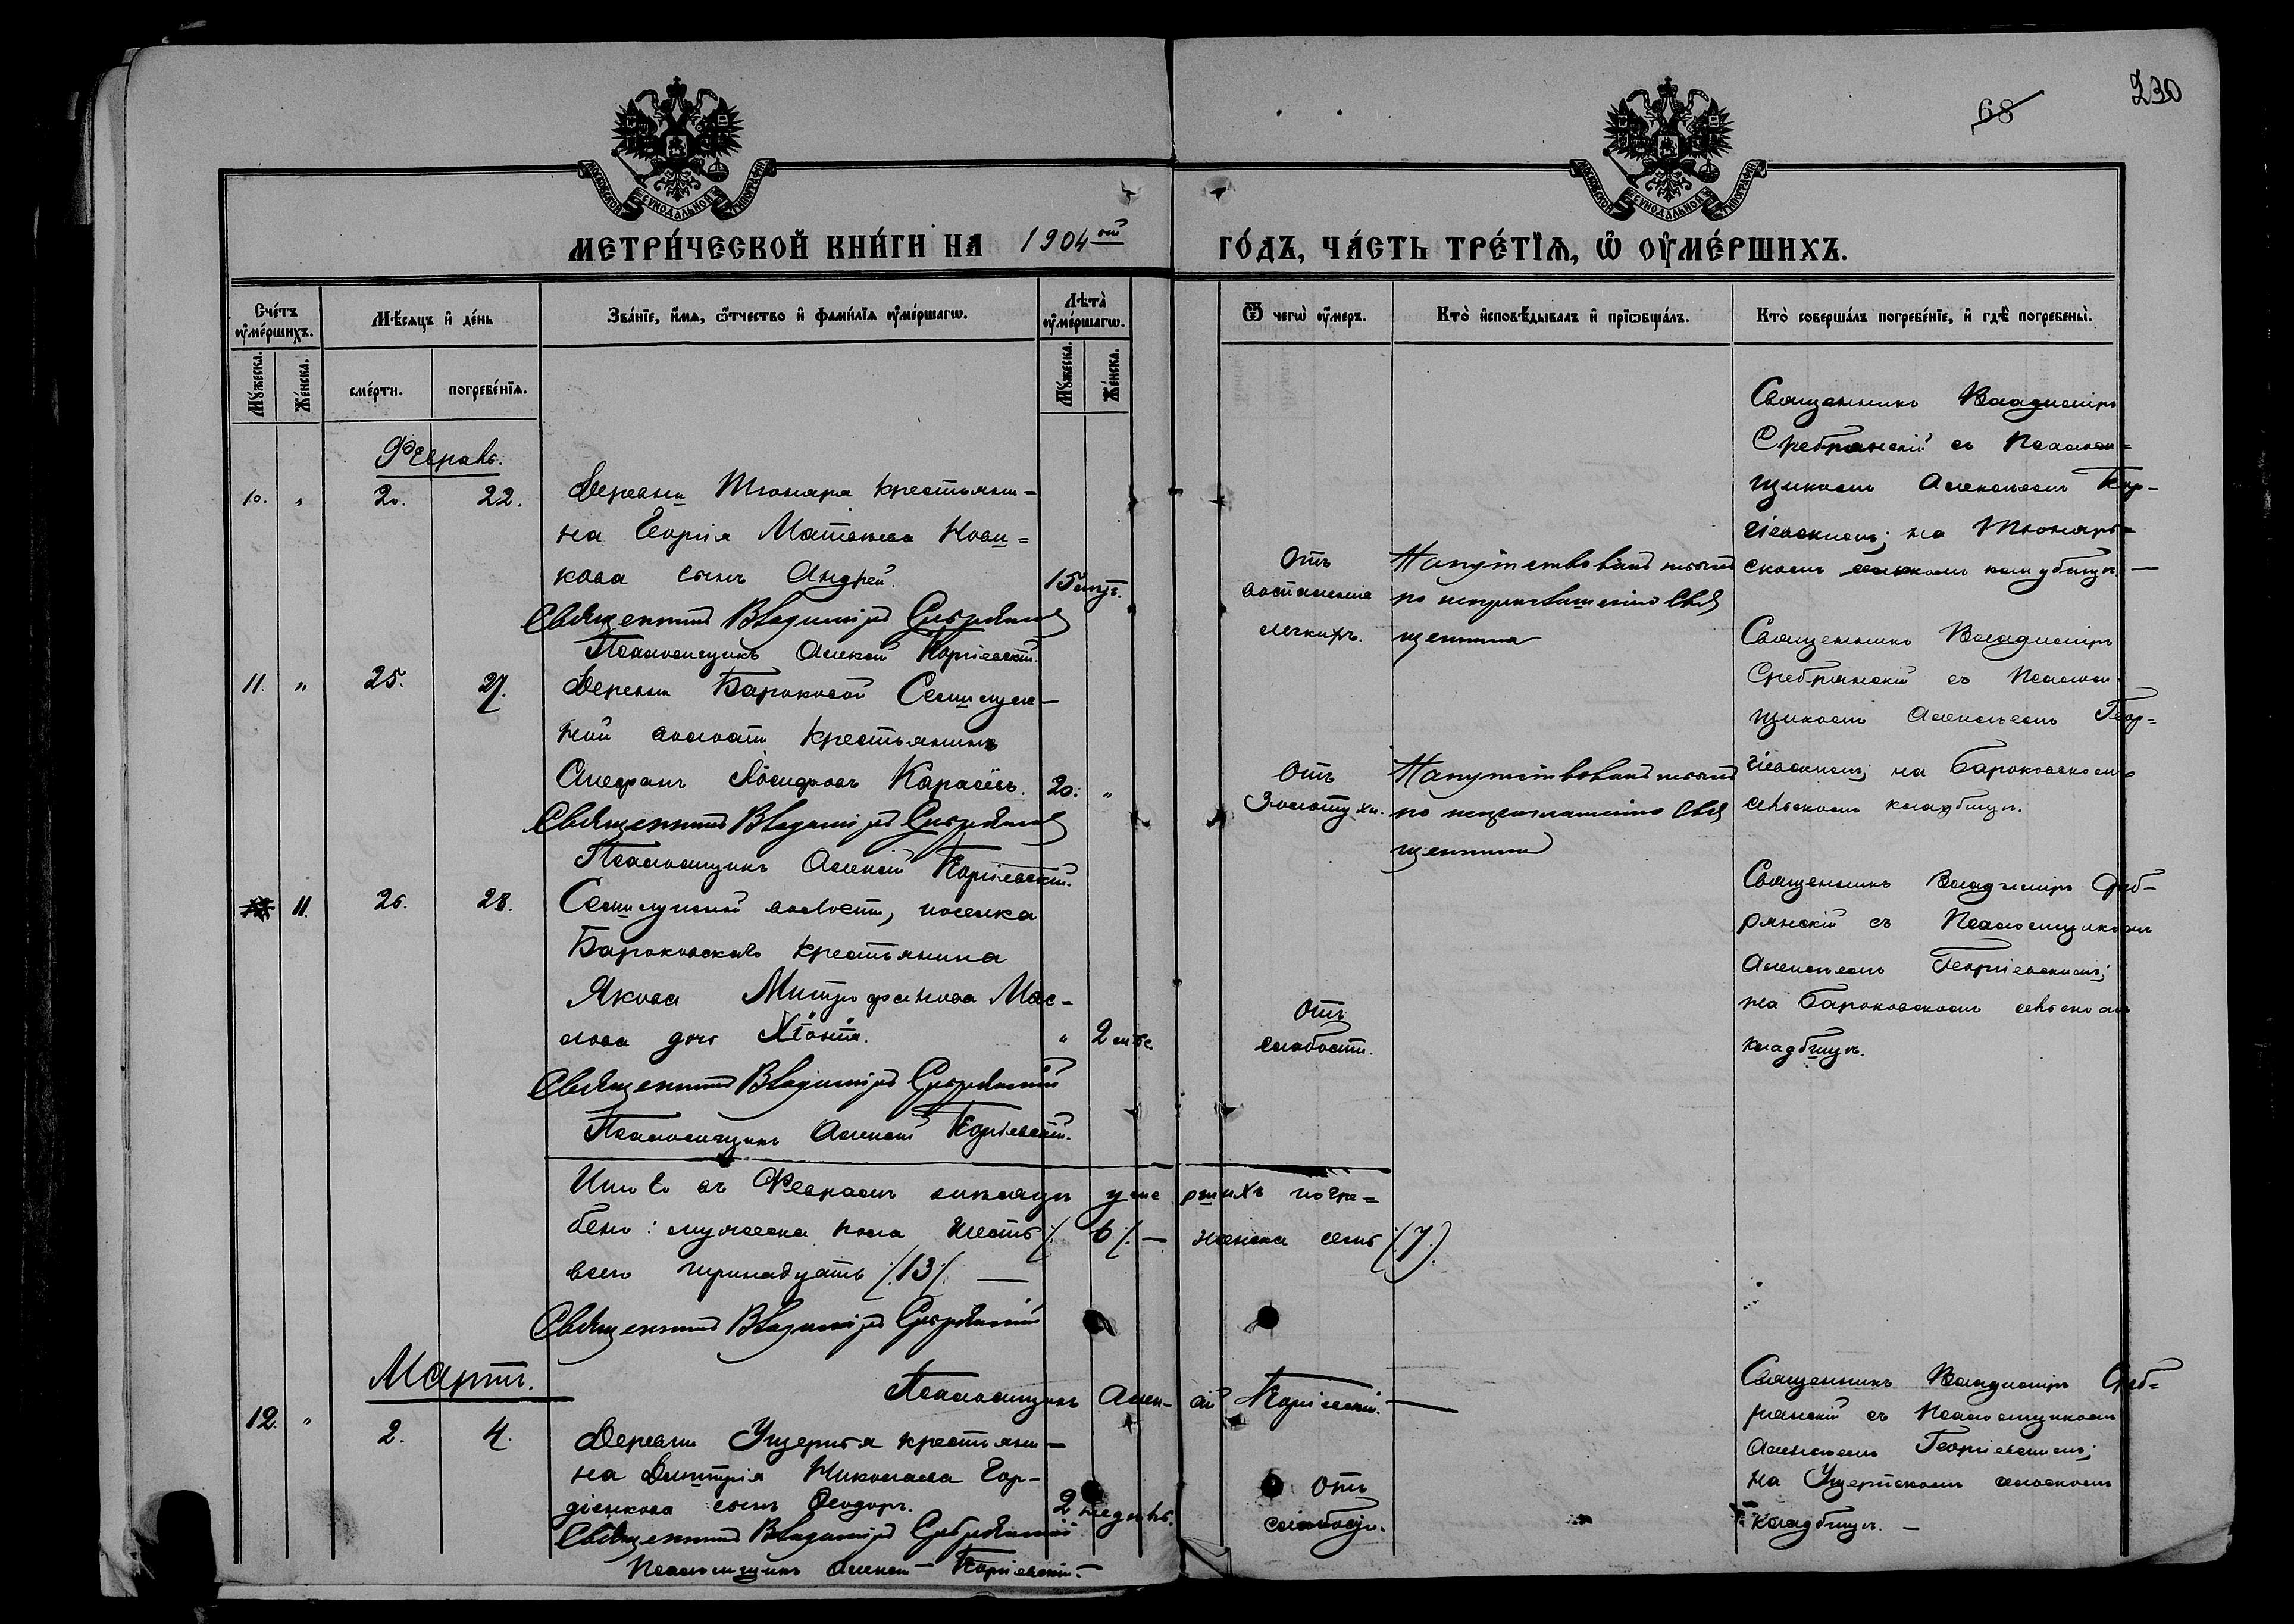 230
68
МОСКОВСКОЙ СѴНОДАЛЬНОЙ ТИПОГРАФІИ
МОСКОВСКОЙ СѴНОДАЛЬНОЙ ТИПОГРАФІИ
МЕТРИ́ЧЕСКОЙ КНИ́ГИ НА 1904 ой
ГО́ДЪ, ЧА́СТЬ ТРЕ́ТЇѦ, Ѿ ОУ҆МЕ́РШИХЪ.
Сче́тъ оу҆ме́ршихъ.
Мꙋ́жеска.
Же́нска.
Мѣ́сяцъ и҆ де́нь
сме́рти.
погребе́нїѧ.
Зва́нїе, и҆́мѧ, ѻ҆́тчество и҆ фами́лїѧ оу҆ме́ршагѡ.
Лѣта̀ оу҆ме́ршагѡ.
Мꙋ́жеска.
Же́нска.
Ѿ чегѡ̀ оу҆́меръ.
Кто̀ и҆сповѣ́дывалъ и҆ прїѡбща́лъ.
Кто̀ соверша́лъ погребе́нїе, и҆ гдѣ̀ погребены̀.
Февраль.
10. „ 20. 22.
Деревни Тюняра крестьяни=
на Георгія Матвѣева Нови=
кова сынъ Андрей. 15 минут.
Священникъ Владиміръ Сребрянскій
Псаломщикъ Алексѣй Георгіевскій.
Отъ
воспаленія
легкихъ.
по неприглашенію свя
щенника
Священникъ Владиміръ
Сребрянскій съ Псалом=
щикомъ Алексѣемъ Геор-
гіевскимъ; на
кладбищѣ. —
11. „ 25. 27.
Деревни Бароковой Семилуж-
ной волости крестьянинъ
Стефанъ Іосифовъ Карасёвъ. 20. „
Священникъ Владиміръ Сребрянскій
Псаломщикъ Алексѣй Георгіевскій.
Отъ
Золотухи.
по неприглашенію свя
щенника
Священникъ Владиміръ
Сребрянскій съ Псалом
щикомъ Алексѣемъ Геор=
гіевскимъ; на Бароковскомъ
сельскомъ кладбищѣ.
11. 26. 28.
Семилужной волости, поселка
Бароковскаго крестьянина
Якова Митрофанова Мас-
лова дочь „ 2 мѣс.
Священникъ Владиміръ Сребрянскій
Псаломщикъ Алексѣй Георгіевскій.
Отъ
слабости.
Священникъ Владиміръ Среб-
рянскій съ Псаломщикомъ
Алексѣемъ Георгіевскимъ;
на Бароковскомъ сельскомъ
кладбищѣ.
Итого въ Февралѣ мѣсяцѣ умершихъ погре=
бено: мужеска пола шесть /. 6 /. — женска семь (7.)
всего тринадцать /. 13 /. —
Священникъ Владиміръ Сребрянскій
Псаломщикъ Алексѣй Георгіевскій. —
Мартъ.
12. „ 2. 4.
Деревни Ущерпья крестьяни-
на Димитрія Николаева Гор-
діенкова сынъ Ѳеодоръ. 2 недѣль.
Священникъ Владиміръ Сребрянскій
Псаломщикъ Алексѣй Георгіевскій. —
Отъ
слабости.
Священникъ Владиміръ Среб=
рянскій съ Псаломщикомъ
Алексѣемъ Георгіевскимъ;
на сельскомъ
кладбищѣ. —